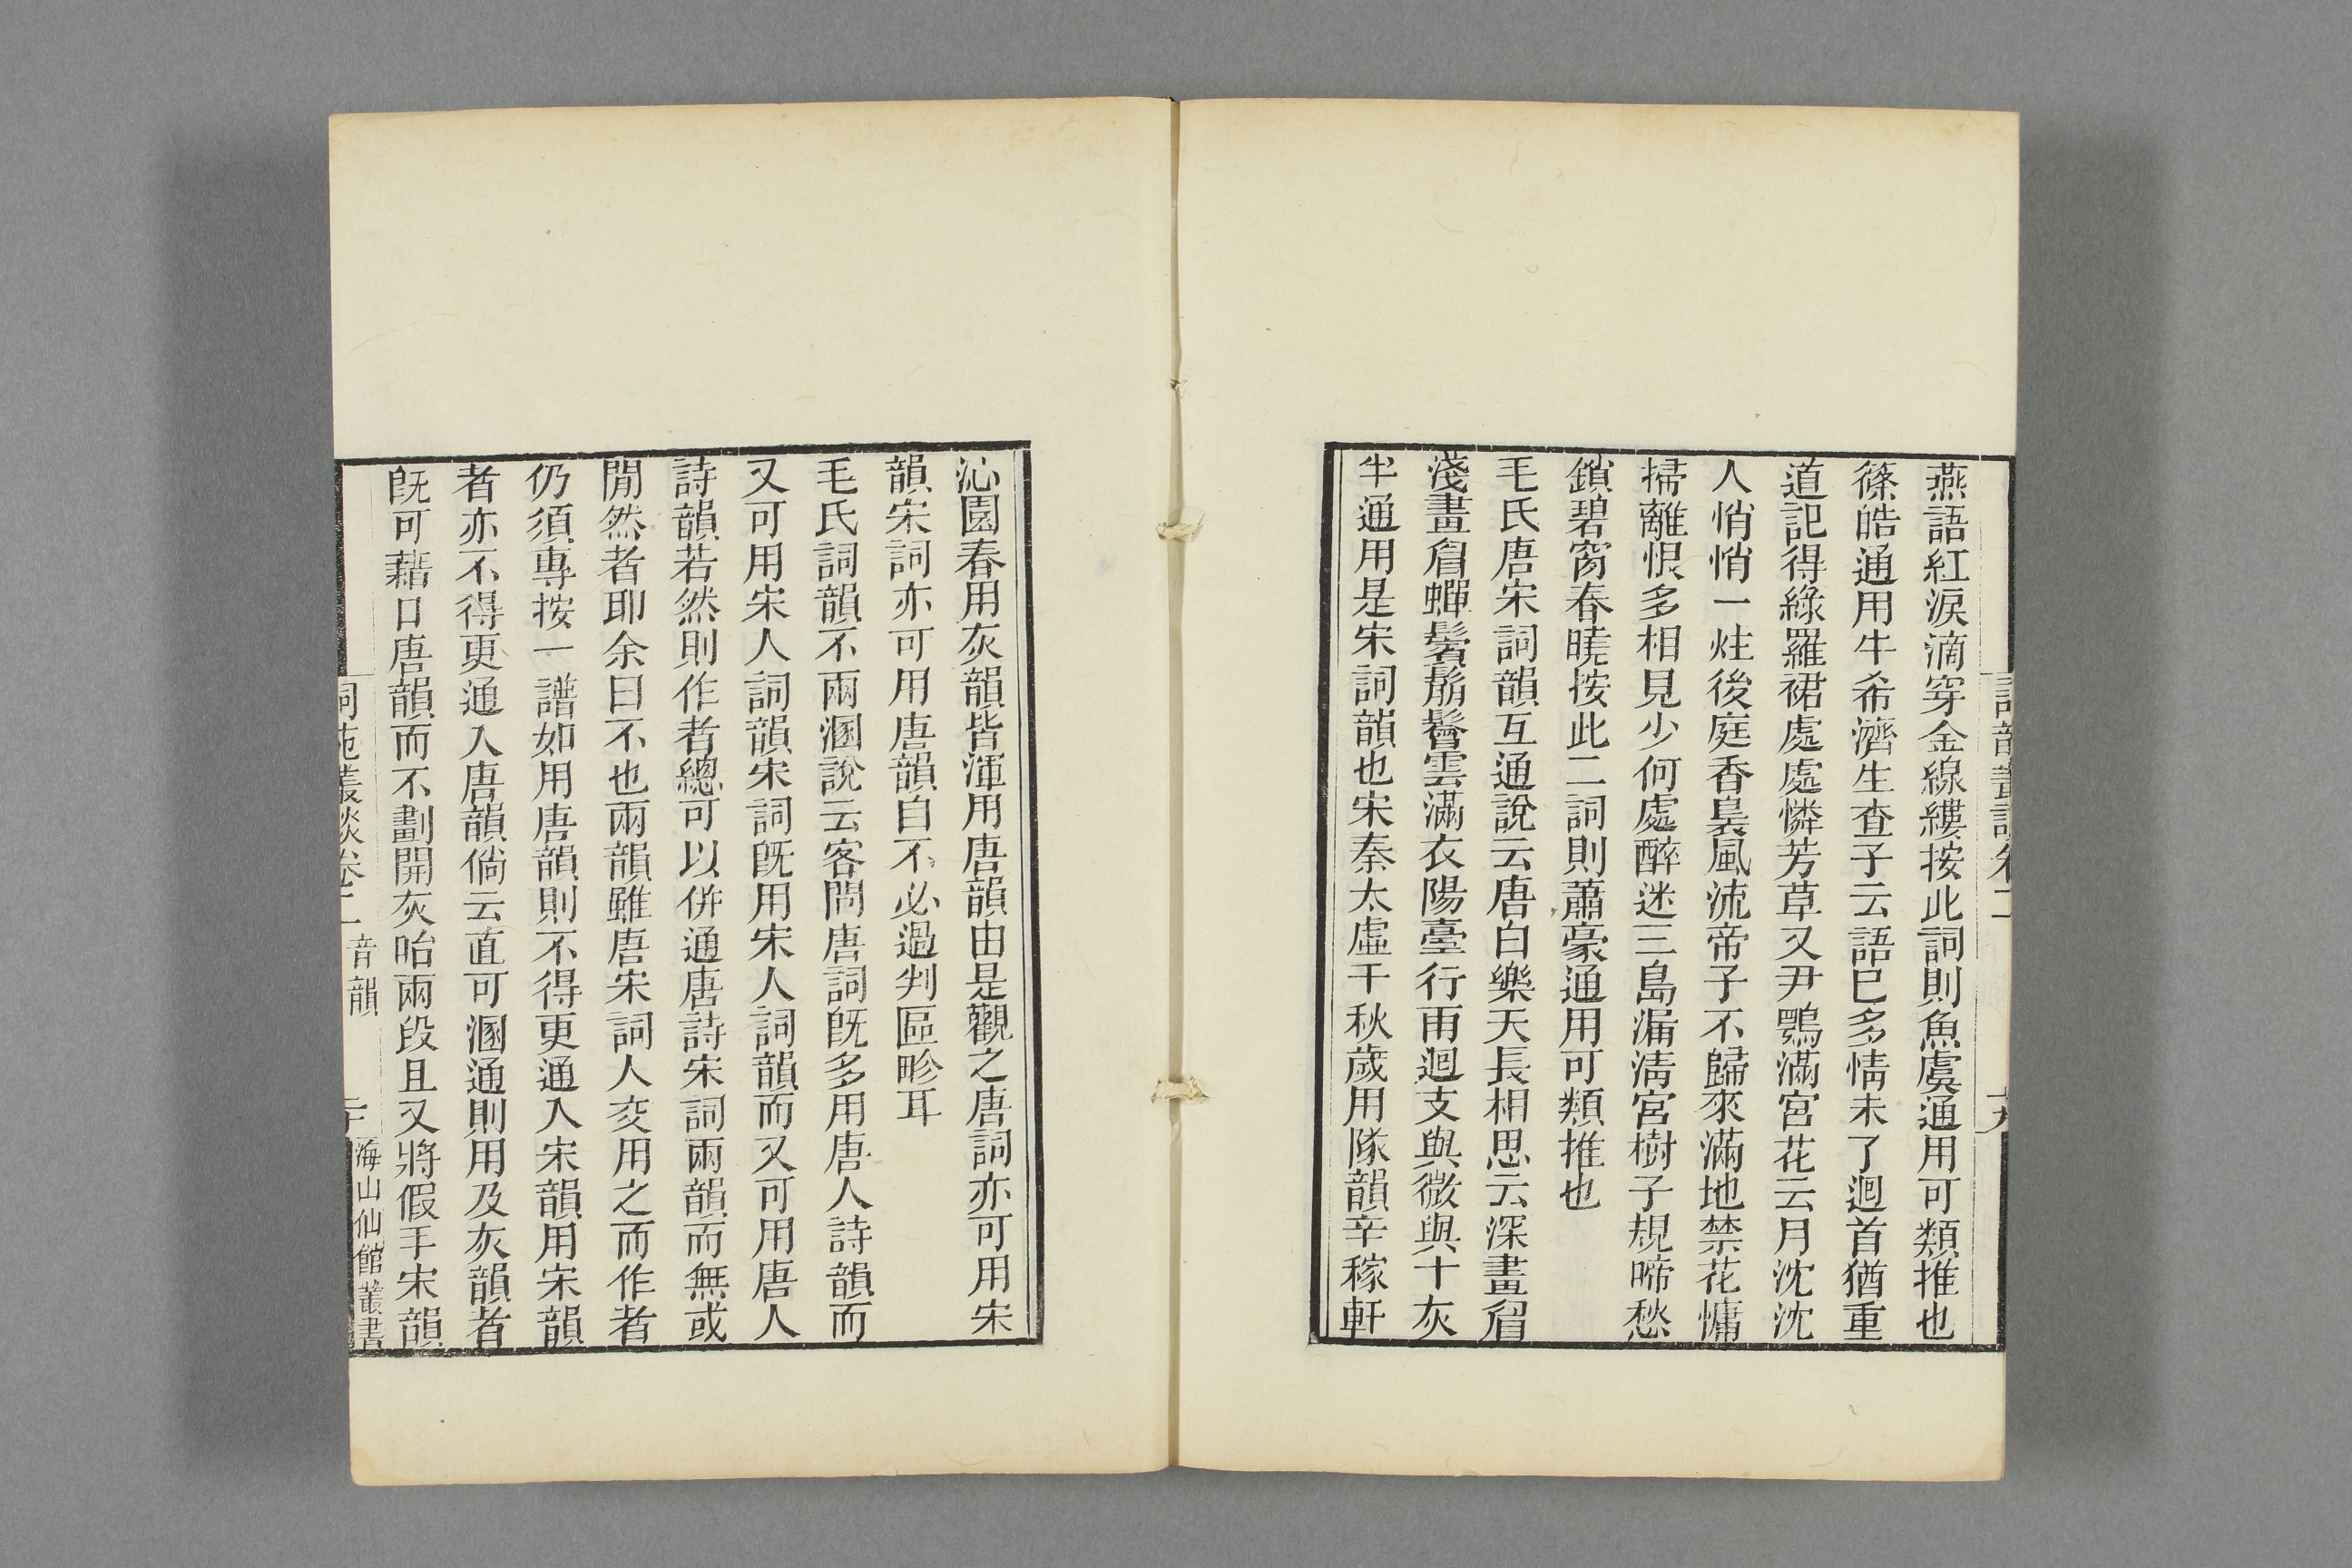 燕語紅淚滴穿金線縷按此詞則魚虞通用可類推也
篠皓通用牛希濟生查子云語已多情未了迴首猶重
道記得綠羅裙處處憐芳草又尹鶚滿宮花云月沈沈
人悄悄一炷後庭香裊風流帝子不歸來滿地禁花慵
掃離恨多相見少何處醉迷三島漏淸宮樹子規啼愁
鎖碧窗春曉按此二詞則蕭豪通用可類推也
毛氏唐宋詞韻互通說云唐白樂天長相思云深畫眉
淺畫眉蟬鬢鬅鬙雲滿衣陽臺行雨迴支與微與十灰
半通用是宋詞韻也宋秦太虛千秋歲用隊韻辛稼軒
沁園春用灰韻皆渾用唐韻由是觀之唐詞亦可用宋
韻宋詞亦可用唐韻自不必過判區畛耳
毛氏詞韻不兩溷說云客問唐詞旣多用唐人詩韻而
又可用宋人詞韻宋詞旣用宋人詞韻而又可用唐人
詩韻若然則作者總可以併通唐詩宋詞兩韻而無或
閒然者耶余曰不也兩韻雖唐宋詞人交用之而作者
仍須專按一譜如用唐韻則不得更通入宋韻用宋韻
者亦不得更通入唐韻倘云直可溷通則用及灰韻者
旣可藉口唐韻而不劃開灰咍兩段且又將假手宋韻
詞苑叢談卷二 音韻 二十 海山仙館叢書